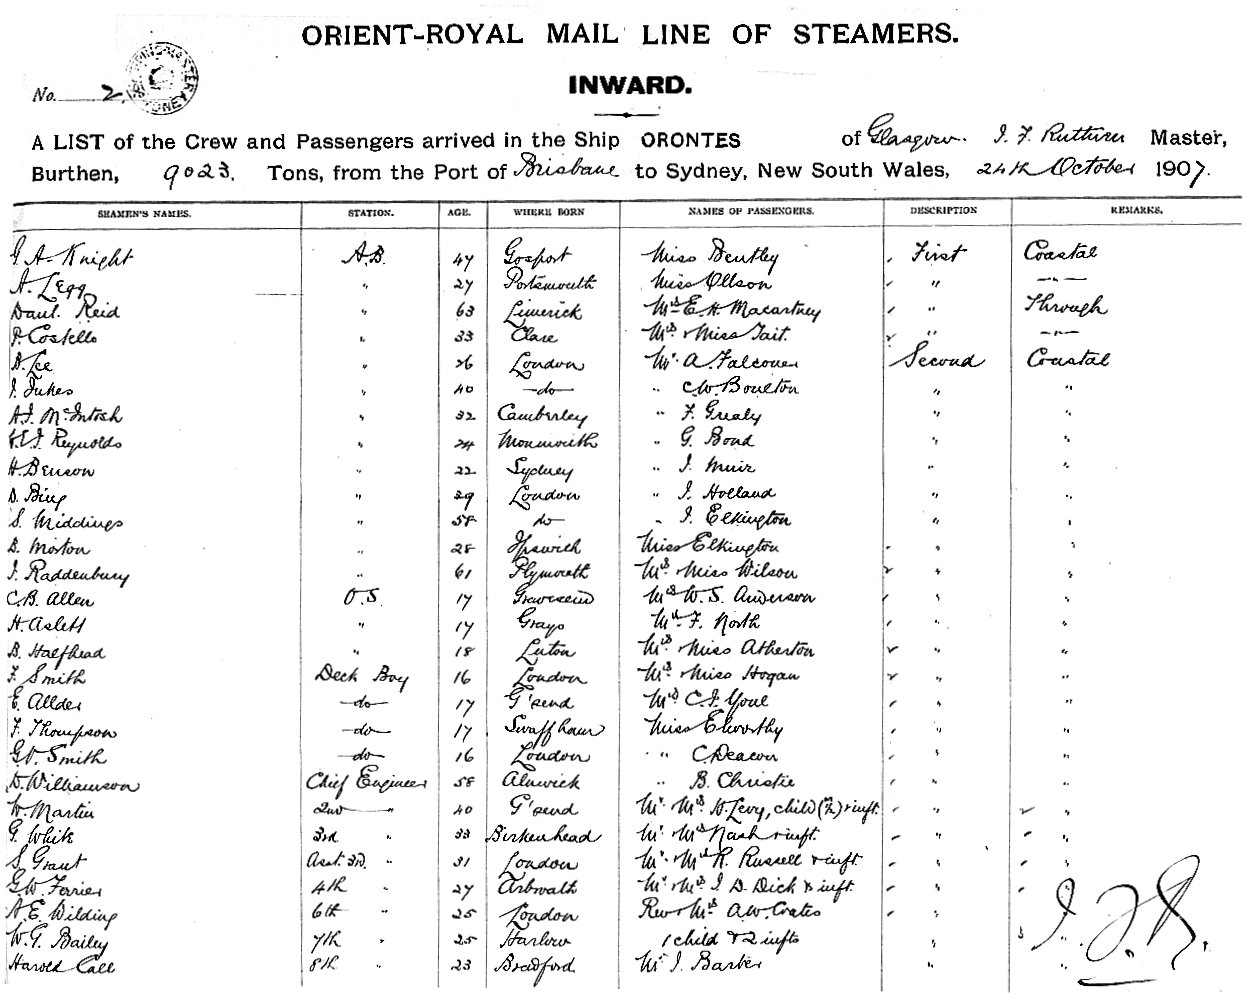 ORIENT-ROYAL MAIL LINE OF STEAMERS.
INWARD.
No. 2.
A LIST of the Crew and Passengers arrived in the Ship ORONTES of Glasgow. Master,
Burthen, 9023. Tons, from the Port of Brisbane to Sydney, New South Wales, 24th October 1907.
SEAMEN'S NAMES. STATION. AGE. WHERE BORN NAMES OF PASSENGERS. DESCRIPTION REMARKS.
G A Knight A.B. 47 Gosport Miss Bentley , First Coastal
A. Legg " 27 Portsmouth Miss Ollson " —"—
Danl. Reid " 63 Limerick Mrs E. H. Macartney " Through
P. Costello " 33 Clare Mrs & Miss Tait. " —"—
D. Lee " 26 London Mr. A. Falconer Second Coastal
J. Jukes " 40 —do— " C. W. Boulton " "
A. J. McIntosh " 32 Camberley " F. Grealy " "
Reynolds " 24 Monmouth " G. Bond " "
H. Benson " 22 Sydney " J. Muir " "
D. Bing " 29 London " J. Holland " "
S. Middings " 58 do— " J. Elkington " "
B. Morton " 28 Ipswich Miss Elkington " "
J. Raddenbury " 61 Plymouth Mrs. Miss Wilson " "
C. B. Allen O.S. 17 Gravesend Mrs W. S. Anderson " "
H. Aslett " 17 Grays Mrs. F. North " "
B. Halfhead " 18 Luton Mrs & Miss Atherton " "
F. Smith Deck Boy 16 London Mrs & Miss Hogan " "
E. Allder —do— 17 G'send Mrs C. J. Youl " "
F. Thompson —do— 17 Swaffham Miss Elworthy " "
Smith —do— 16 London " C. Deacon " "
D. Williamson Chief Engineer 58 Alnwick " B. Christie " "
W. Martin 2nd " 40 G'send Mr. Mrs H. Levy, child & inft. " "
G. White 3rd " 33 Birkenhead Mr. Mrs Nash & inft. " "
S. Grant Asst. 3rd. " 31 London Mr. Mrs R. Russell & inft. " "
G. W. Ferrier 4th " 27 Arbroath Mr. Mrs. J. D. Dick & inft. " "
A. E. Wilding 6th " 25 London Rev & Mrs A. W. Coates " "
W. G. Bailey 7th " 25 Harlow 1 child & 2 infts " "
Harold Call 8th " 23 Bradford Mr J. Barber " "
J. F. R.